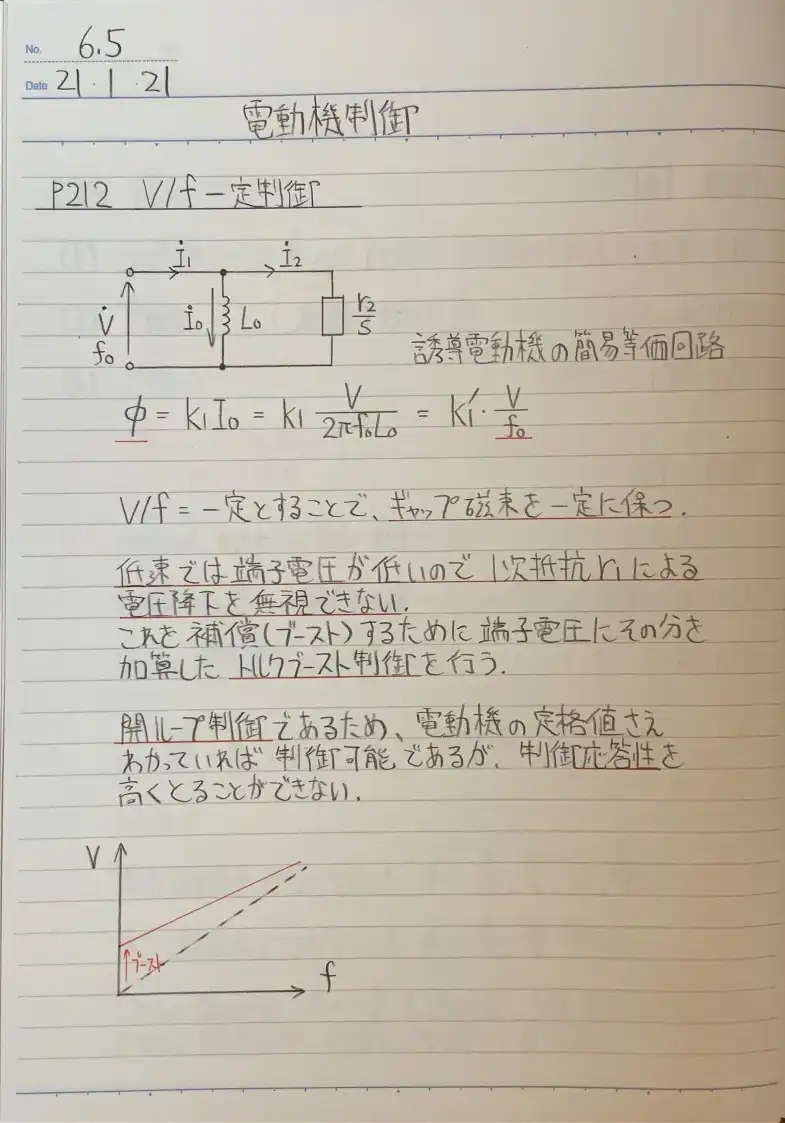 No. 6.5
Date 21・1・21
電動機制御
P212 V/f一定制御
İ1 İ2
V̇ İ0 L0 r2/s
f0
誘導電動機の簡易等価回路
φ = k1I0 = k1 V/2πf0L0 = k1'・V/f0
V/f = 一定とすることで、ギャップ磁束を一定に保つ.
低速では端子電圧が低いので 1次抵抗r1による
電圧降下を無視できない.
これを補償(ブースト)するために端子電圧にその分を
加算したトルクブースト制御を行う.
開ループ制御であるため、電動機の定格値さえ
わかっていれば制御可能であるが、制御応答性を
高くとることができない.
V
↑ブースト
f